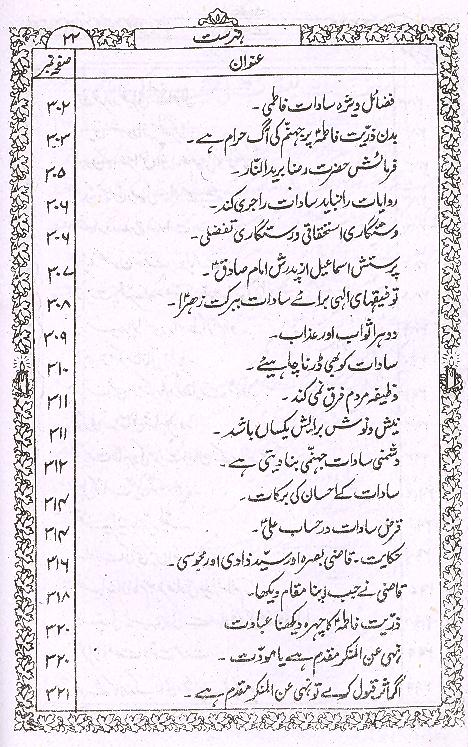 فہرست ۲۲
عنوان صفحہ نمبر
فضائل ویژہ سادات فاطمی۔ ۳۰۲
بدن ذریّت فاطمہؑ پر جہنم کی آگ حرام ہے۔ ۳۰۳
فرمائش حضرت رضاؑ بزید النّار۔ ۳۰۵
روایات را نباید سادات را جری کند۔ ۳۰۶
رستگاری استحقاقی و رستگاری تفضلی۔ ۳۰۶
پرستش اسماعیل از پدرش امام صادقؑ۔ ۳۰۷
توفیقہای الٰہی برائے سادات ببرکت زہراؑ۔ ۳۰۸
دوہرا ثواب اور عذاب۔ ۳۰۹
سادات کو بھی ڈرنا چاہیئے۔ ۳۱۰
وظیفہ مردم فرق نمی کند۔ ۳۱۱
نیش و نوش برایش یکساں باشد۔ ۳۱۱
دشمنی سادات جہنمی بنا دیتی ہے۔ ۳۱۲
سادات کے احسان کی برکات۔ ۳۱۴
قرض سادات در حساب علیؑ۔ ۳۱۴
حکایت۔ قاضی بصرہ اور سید زادی اور مجوسی۔ ۳۱۶
قاضی نے جب اپنا مقام دیکھا۔ ۳۱۸
ذریّت فاطمہؑ کا چہرہ دیکھنا عبادت ۳۲۰
نہی عن المنکر مقدم ہے یا مودّت۔ ۳۲۰
اگر اثر قبول کرے تو نہی عن المنکر مقدم ہے۔ ۳۲۱